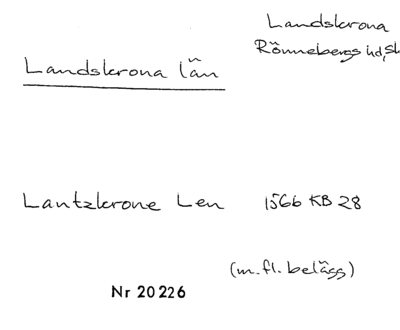 Landskrona
Rönnebergs hd, Sk
Landskrona län
Lantzkrone Len 1566 KB 28
(m. fl. belägg)
Nr 20226